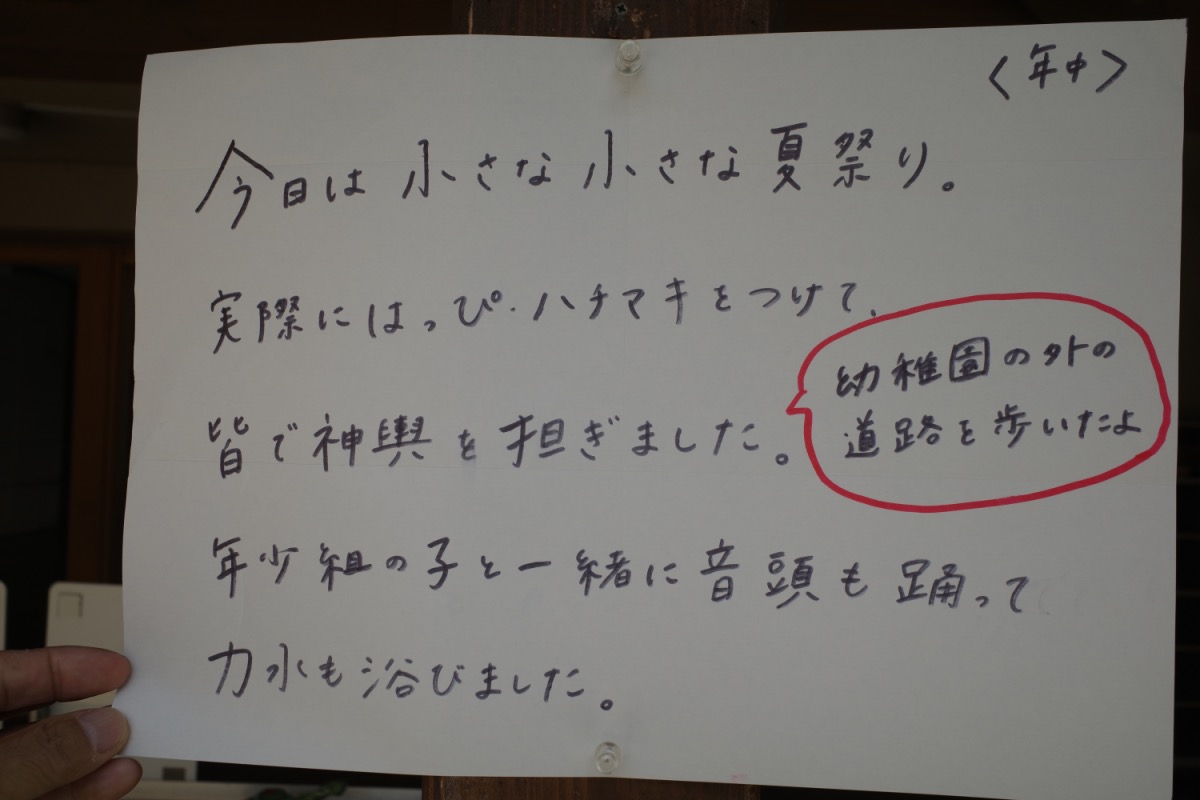 〈年中〉
今日は小さな小さな夏祭り。
実際にはっぴ・ハチマキをつけて、
皆で神輿を担ぎました。
幼稚園の外の
道路を歩いたよ
年少組の子と一緒に音頭も踊って
力水も浴びました。